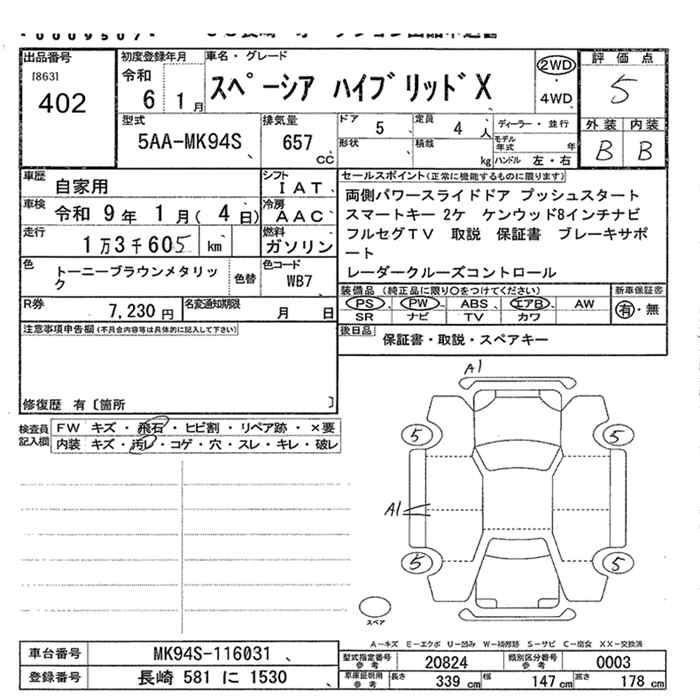 出品番号
[863]
402
初度登録年月
令和
6 1月
車名・グレード
スペーシア ハイブリッドX
2WD
・
4WD
評価点
5
外装 内装
B B
型式
5AA-MK94S
排気量
657 cc
ドア
5
定員
4 人
形状
積載
kg
ディーラー・並行
モデル
年式 年
ハンドル 左・右
車歴
自家用
シフト
IAT
車検
令和 9年 1月( 4日)
冷房
AAC
走行
1万3千605 km
燃料
ガソリン
色
トーニーブラウンメタリッ
ク
色替
色コード
WB7
R券
7,230円
名変通知期限
月 日
セールスポイント(正常に機能するものに限ります)
両側パワースライドドア プッシュスタート
スマートキー 2ケ ケンウッド8インチナビ
フルセグTV 取説 保証書 ブレーキサポ
ート
レーダークルーズコントロール
装備品 (純正品に限り○をつけてください)
新車保証書
PS PW ABS エアB AW
SR ナビ TV カワ
有・無
後日品
保証書・取説・スペアキー
注意事項申告欄(不具合内容等は具体的に記入して下さい)
修復歴 有〔箇所 〕
検査員
記入欄
FW キズ・飛石・ヒビ割・リペア跡・×要
内装 キズ・汚レ・コゲ・穴・スレ・キレ・破レ
A1
5 5
A1
5 5
スペア
A-キズ E-エクボ U-凹み W-補修跡 S-サビ C-腐食 XX-交換済
車台番号
MK94S-116031
登録番号
長崎 581 に 1530
型式指定番号
参考
20824
類別区分番号
参考
0003
車庫証明用
参考
長さ 339 cm 幅 147 cm 高さ 178 cm